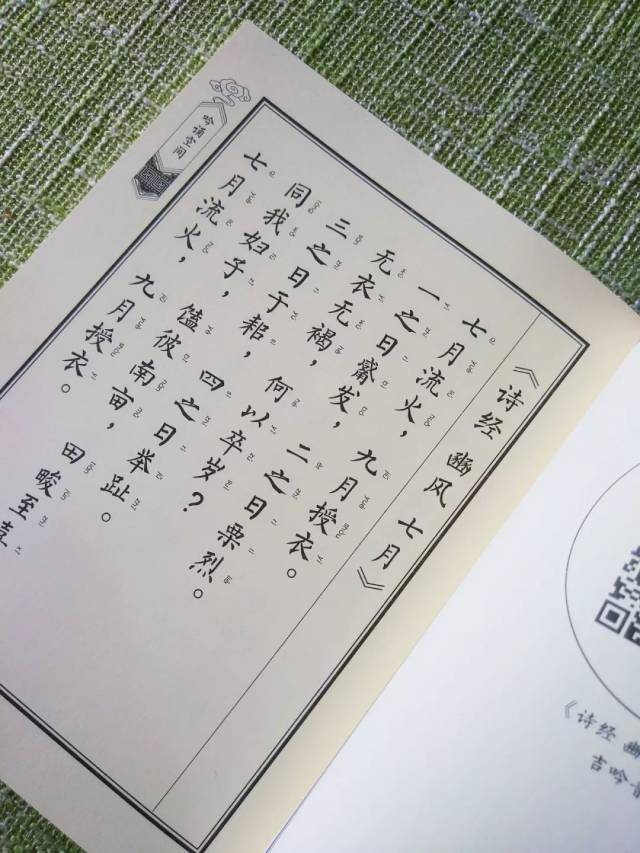 吟诵空间
《诗经 豳风 七月》
七月流火，九月授衣。
一之日觱发，二之日栗烈。
无衣无褐，何以卒岁？
三之日于耜，四之日举趾。
同我妇子，馌彼南亩，田畯至喜
七月流火，九月授衣。
《诗经 豳
吉吟